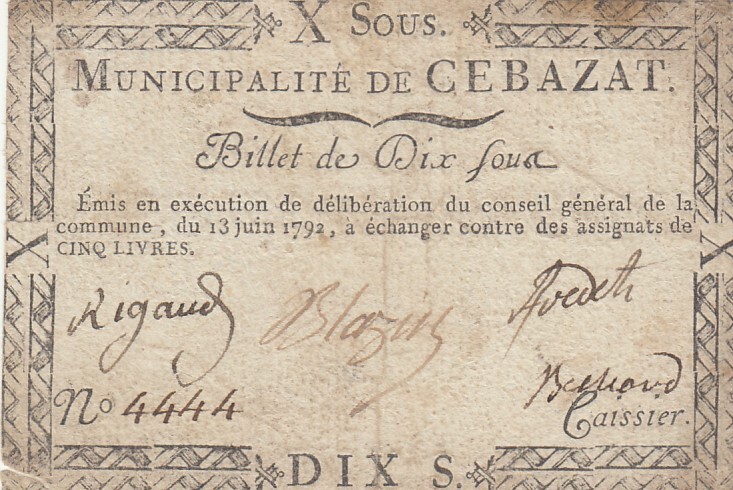 X SOUS.
MUNICIPALITÉ DE CEBAZAT.
Billet de Dix sous
Émis en exécution de délibération du conseil général de la
commune, du 13 juin 1792, à échanger contre des assignats de
CINQ LIVRES.
X X
Rigaud
No 4444
Caissier.
DIX S.